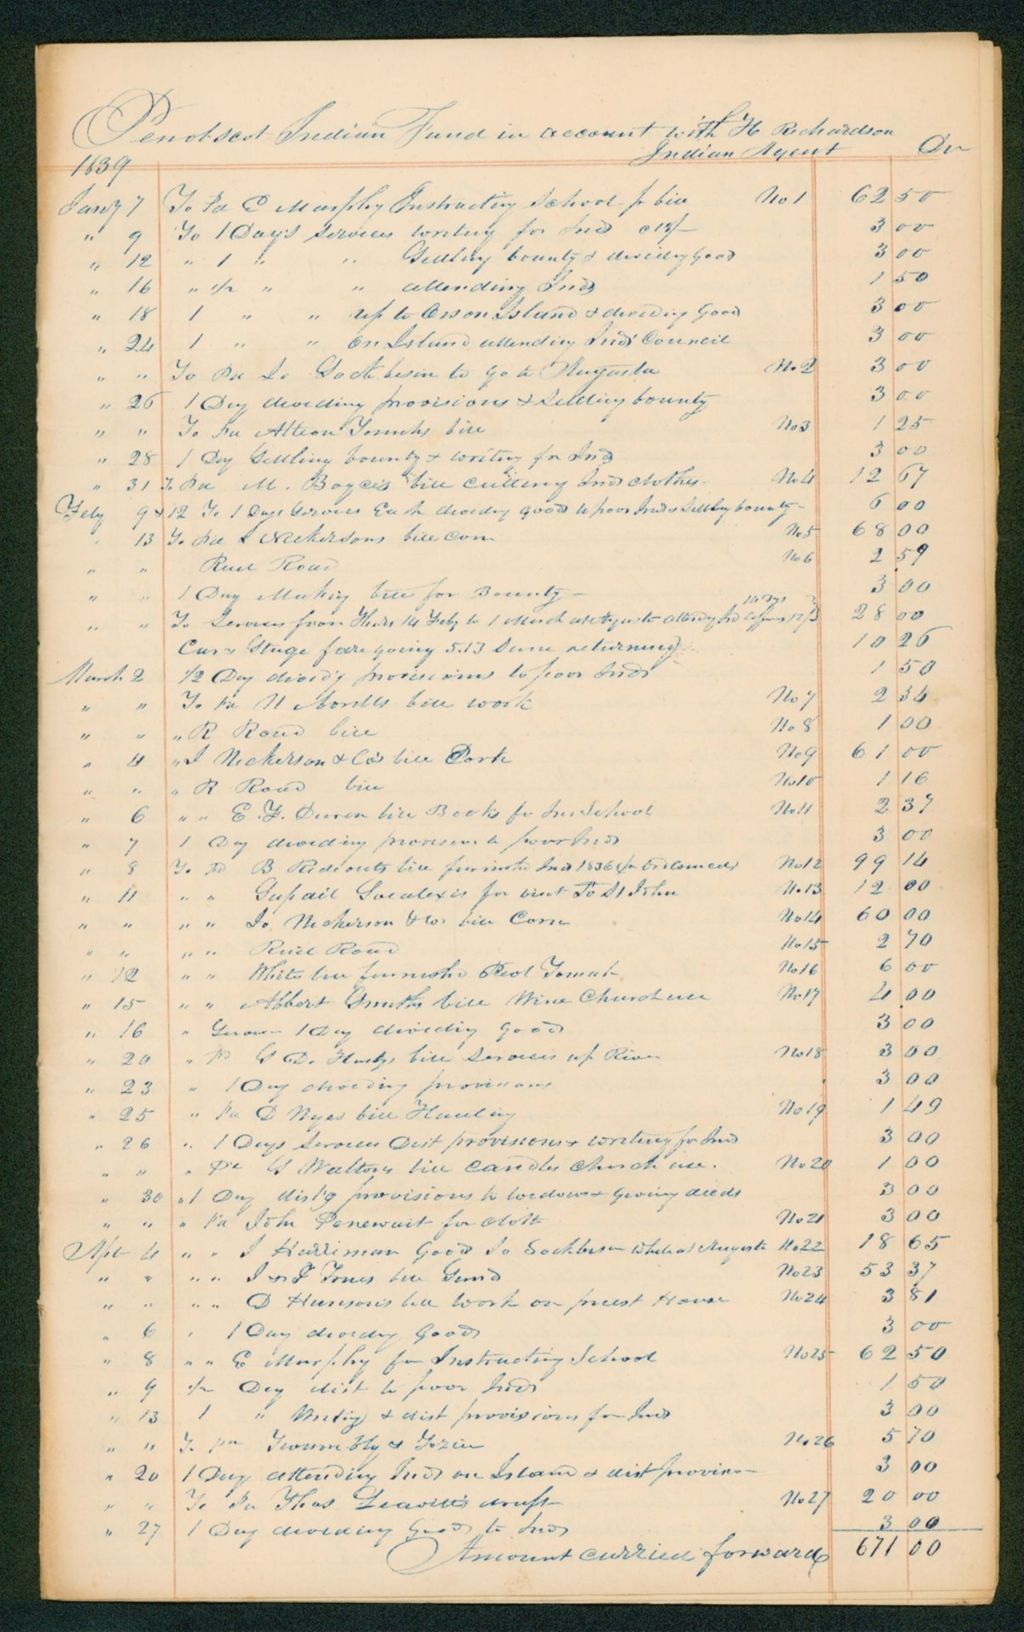 Penobscot Indian Fund in account with H Richardson
1839 Indian Agent Dr
Jany 7 To Pd E Murphy Instructing School pr bill No 1 62 50
" 9 To 1 Days services writing for Inds 3 00
" 12 " 1 " " Settling bounty & dividing goods 3 00
" 16 " 1/2 " " attending Inds 1 50
" 18 1 " " up to Orson Island & dividing Goods 3 00
" 24 1 " " on Island attending Inds Council 3 00
" " To Pd Sockbesin to go to Augusta No 2 3 00
" 26 1 Day dividing provisions & Settling bounty 3 00
" " To Pd Attean bill No 3 1 25
" 28 1 Day Settling bounty & writing for Inds 3 00
" 31 To Pd M. Boyces bill cutting Inds clothes No 4 12 67
Feby 9 & 12 To 1 Days Services Each dividing goods to poor Inds & Settling bounty 6 00
" 13 To Pd Nickersons bill Corn No 5 68 00
" " Road No 6 2 59
" " 1 Day Making bill for Bounty 3 00
" " To Services from 14 Feby to 1 March at Augusta attending Ind affairs 28 00
Cars & Stage fare going 5.13 Same returning 10 26
March 2 1/2 Day divid'g provisions to poor Inds 1 50
" " To Pd N bill work No 7 2 34
" " " R Road bill No 8 1 00
" 4 " J Nickerson & Co's bill Pork No 9 61 00
" " " R Road bill No 10 1 16
" 6 " " E. F. Duren bill Books for Ind School No 11 2 37
" 7 1 Day dividing provisions to poor Inds 3 00
" 8 To Pd B Rideouts bill furnishd Inds 1836 No 12 99 14
" 11 " " for visit To St John No 13 12 00
" " " " Nickerson & Co bill Corn No 14 60 00
" " " " Road No 15 2 70
" 12 " " White bill furnishd No 16 6 00
" 15 " " Albert Smiths bill Wine Church use No 17 4 00
" 16 " 1 Day dividing goods 3 00
" 20 " Pd bill services up River No 18 3 00
" 23 " 1 Day dividing provisions 3 00
" 25 " Pd D Nyes bill Hauling No 19 1 49
" 26 " 1 Days Services Dist provisions & writing for Inds 3 00
" " " Pd Waltons bill Candles Church use. No 20 1 00
" 30 " 1 Day dist'g provisions to widows & giving deeds 3 00
" " " Pd John Penewait for cloth No 21 3 00
Apl 4 " " J Harriman Goods to Sockbesin while at Augusta No 22 18 65
" " " " Jones bill No 23 53 37
" " " " D Hunson's bill work on priest House No 24 3 81
" 6 " 1 Day dividing Goods 3 00
" 8 " " E Murphy for Instructing School No 25 62 50
" 9 1/2 Day dist to poor Inds 1 50
" 13 1 " & dist provisions for Inds 3 00
" " To pd Twombly & Tozier No 26 5 70
" 20 1 Day attending Inds on Island & dist provision 3 00
" " To Pd Thos Leavitts draft No 27 20 00
" 27 1 Day dividing Goods to Inds 3 00
Amount carried forward 671 00